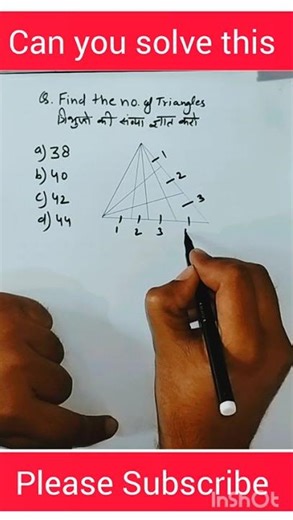 Can you solve this
Q. Find the no. of Triangles
त्रिभुजों की संख्या ज्ञात करो
a) 38
b) 40
c) 42
d) 44
1
2
3
1 2 3
Please Subscribe
InShOt